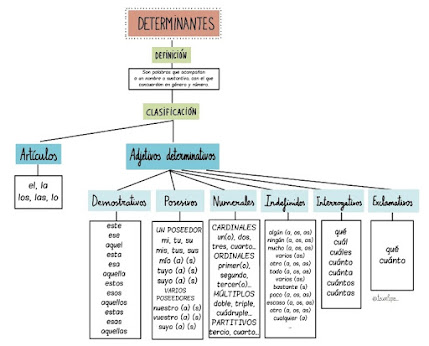 DETERMINANTES
DEFINICIÓN
Son palabras que acompañan
a un nombre o sustantivo, con el que
concuerdan en género y número
CLASIFICACIÓN
Artículos
el, la
los, las, lo
Adjetivos determinativos
Demostrativos
este
ese
aquel
esta
esa
aquella
estos
esos
aquellos
estas
esas
aquellas
Posesivos
UN POSEEDOR
mi, tu, su
mis, tus, sus
mío (a) (s)
tuyo (a) (s)
suyo (a) (s)
VARIOS
POSEEDORES
nuestro (a) (s)
vuestro (a) (s)
suyo (a) (s)
Numerales
CARDINALES
un(o), dos,
tres, cuatro...
ORDINALES
primer(o),
segundo,
tercer(o)...
MÚLTIPLOS
doble, triple,
cuádruple...
PARTITIVOS
tercio, cuarto...
Indefinidos
algún (a, os, as)
ningún (a, os, as)
mucho (a, os, as)
varios (as)
otro (a, os, as)
todo (a, os, as)
varios (as)
bastante (s)
poco (a, os, as)
escaso (a, os, as)
otro (a, os, as)
cualquier (a)
...
Interrogativos
qué
cuál
cuáles
cuánto
cuánta
cuántos
cuántas
Exclamativos
qué
cuánto